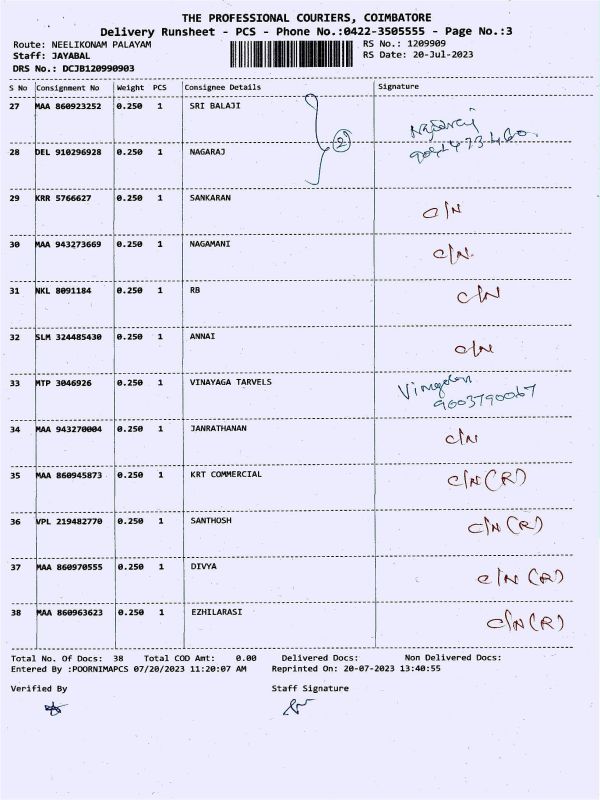 THE PROFESSIONAL COURIERS, COIMBATORE
Delivery Runsheet - PCS - Phone No.:0422-3505555 - Page No.:3
Route: NEELIKONAM PALAYAM RS No.: 1209909
Staff: JAYABAL RS Date: 20-Jul-2023
DRS No.: DCJB120990903
S No Consignment No Weight PCS Consignee Details Signature
27 MAA 860923252 0.250 1 SRI BALAJI
2 Nagaraj
28 DEL 910296928 0.250 1 NAGARAJ
29 KRR 5766627 0.250 1 SANKARAN C/N
30 MAA 943273669 0.250 1 NAGAMANI C/N.
31 NKL 8091184 0.250 1 RB C/N
32 SLM 324485430 0.250 1 ANNAI C/N
33 MTP 3046926 0.250 1 VINAYAGA TARVELS
9003790067
34 MAA 943270004 0.250 1 JANRATHANAN C/N
35 MAA 860945873 0.250 1 KRT COMMERCIAL C/N (R)
36 VPL 219482770 0.250 1 SANTHOSH C/N (R)
37 MAA 860970555 0.250 1 DIVYA C/N (R)
38 MAA 860963623 0.250 1 EZHILARASI C/N (R)
Total No. Of Docs: 38 Total COD Amt: 0.00 Delivered Docs: Non Delivered Docs:
Entered By :POORNIMAPCS 07/20/2023 11:20:07 AM Reprinted On: 20-07-2023 13:40:55
Verified By Staff Signature